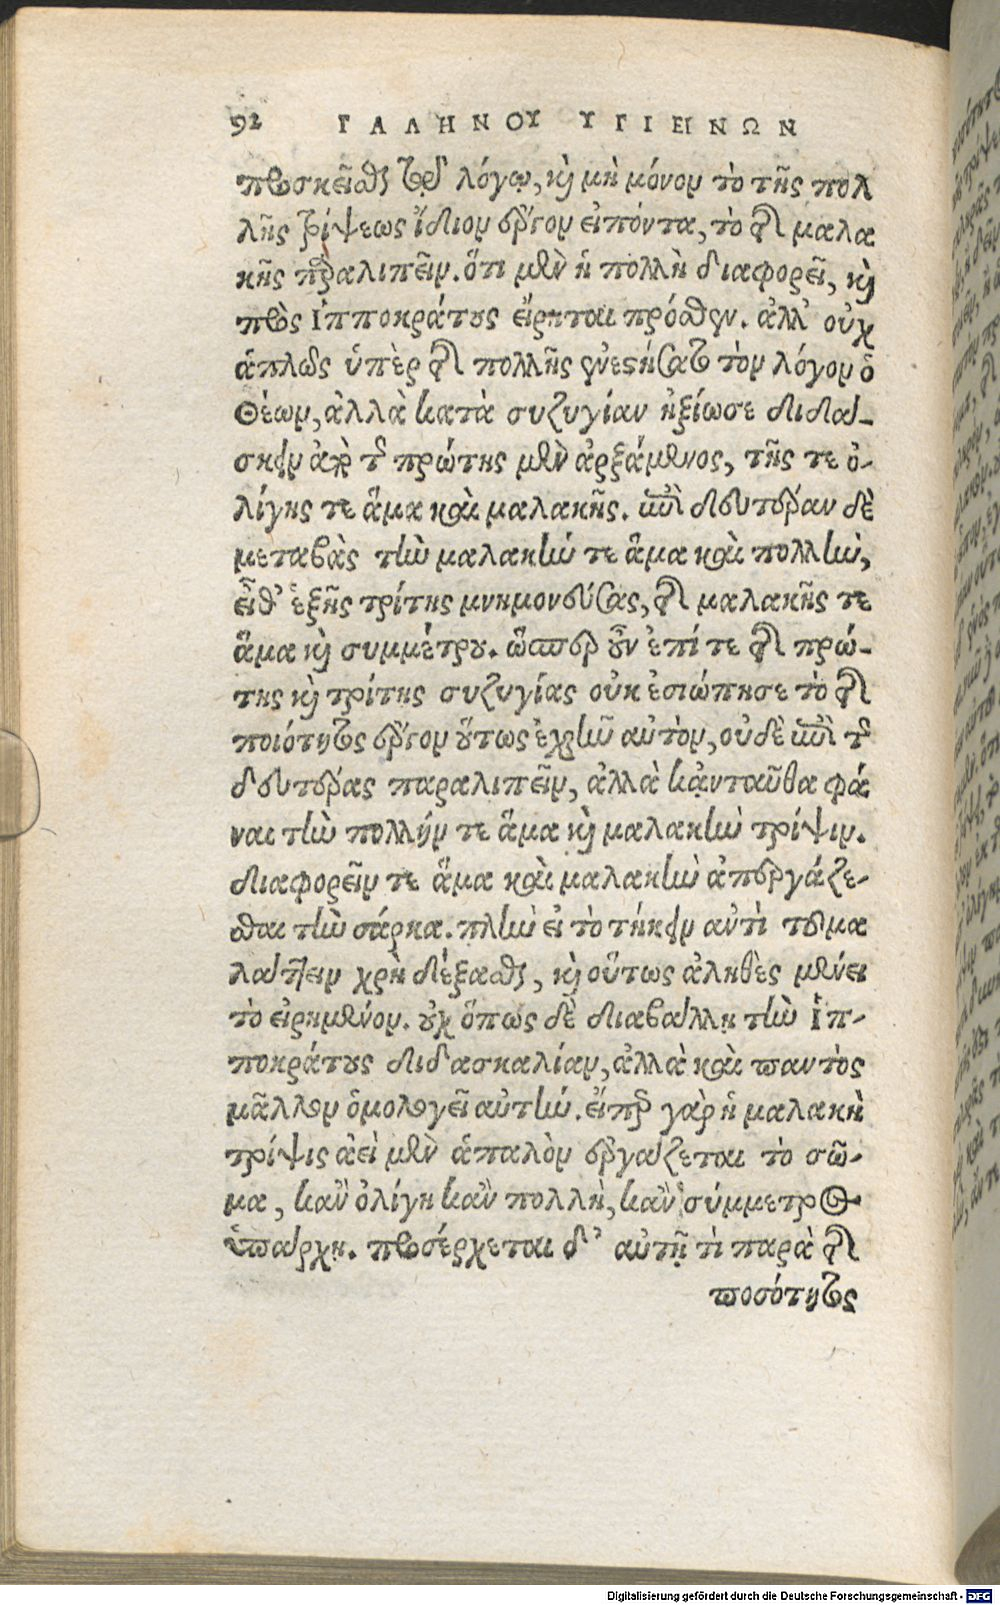 92 ΓΑΛΗΝΟΥ ΥΓΙΕΙΝΩΝ
προσκεῖσθαι τῷδε λόγῳ, καὶ μὴ μόνον τὸ τῆς πολ
λῆς τρίψεως ἴδιον ἔργον εἰπόντα, τὸ τῆς μαλα
κῆς παραλιπεῖν. ὅτι μὲν ἡ πολλὴ διαφορεῖ, καὶ
πρὸς Ἱπποκράτους εἴρηται πρόσθεν. ἀλλ' οὐχ
ἁπλῶς ὑπὲρ τῆς πολλῆς ἐνεστήσατο τὸν λόγον ὁ
Θέων, ἀλλὰ κατὰ συζυγίαν ἠξίωσε διδά-
σκειν ἀπὸ τῆς πρώτης μὲν ἀρξάμενος, τῆς τε ὀ-
λίγης τε ἅμα καὶ μαλακῆς. ἐπὶ δευτέραν δὲ
μεταβὰς τὴν μαλακήν τε ἅμα καὶ πολλήν,
εἶθ' ἑξῆς τρίτης μνημονεύσας, τῆς μαλακῆς τε
ἅμα καὶ συμμέτρου. ὥσπερ οὖν ἐπί τε τῆς πρώ-
της καὶ τρίτης συζυγίας οὐκ ἐσιώπησε τὸ τῆς
ποιότητος ἔργον οὕτως ἐχρῆν αὐτὸν, οὐδὲ ἐπὶ τῆς
δευτέρας παραλιπεῖν, ἀλλὰ κἀνταῦθα φά
ναι τὴν πολλήν τε ἅμα καὶ μαλακὴν τρίψιν.
διαφορεῖν τε ἅμα καὶ μαλακὴν ἀπεργάζε-
σθαι τὴν σάρκα. πλὴν εἰ τὸ τήκειν αὐτὶ τοῦ μα
λάττειν χρὴ δέξασθαι, καὶ οὕτως ἀληθὲς μένει
τὸ εἰρημένον. οὐχ ὅπως δὲ διαβάλλῃ τὴν Ἱπ-
ποκράτους διδασκαλίαν, ἀλλὰ καὶ παντὸς
μᾶλλον ὁμολογεῖ αὐτήν. εἴπερ γὰρ ἡ μαλακὴ
τρίψις ἀεὶ μὲν ἁπαλὸν ἐργάζεται τὸ σῶ-
μα, κἂν ὀλίγη κἂν πολλὴ, κἂν σύμμετρος
ὑπάρχῃ. προσέρχεται δ' αὐτῇ τὶ παρὰ τῆς
ποσότητος
Digitalisierung gefördert durch die Deutsche Forschungsgemeinschaft - DFG